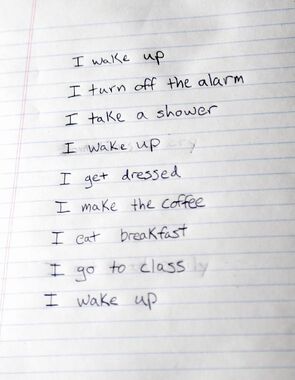 I wake up
I turn off the alarm
I take a shower
I wake up
I get dressed
I make the coffee
I eat breakfast
I go to class
I wake up